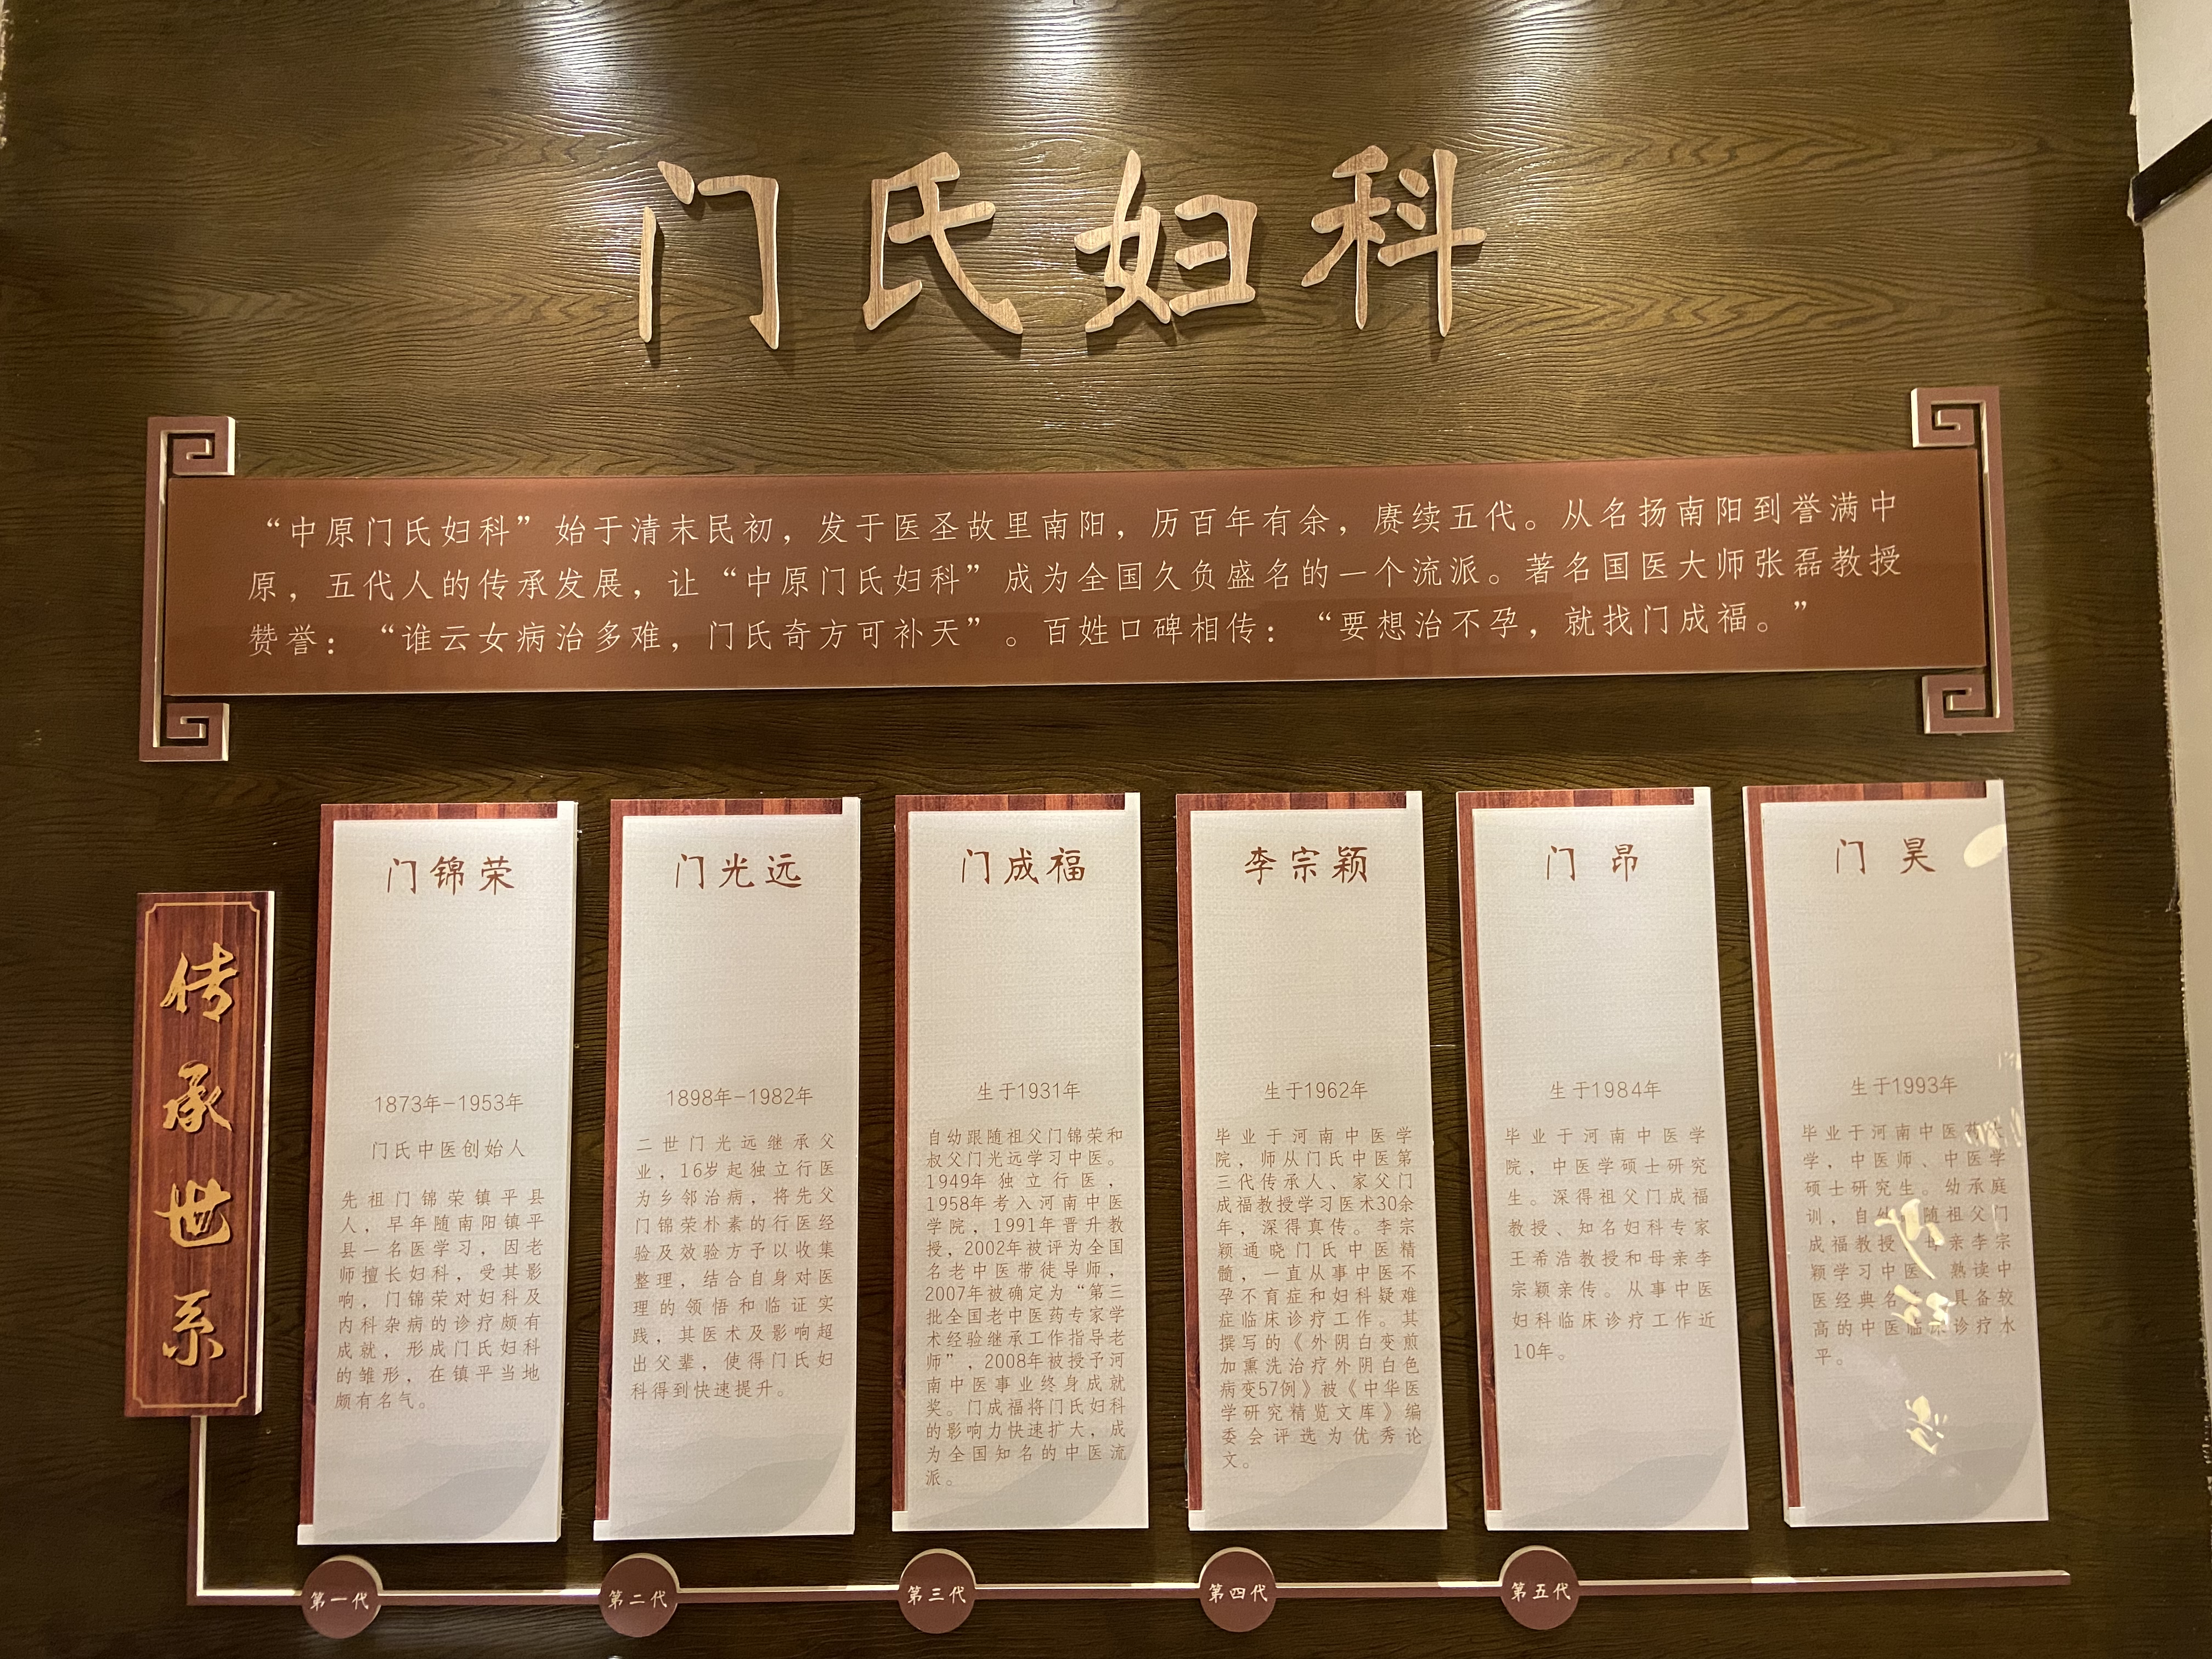 门氏妇科
“中原门氏妇科”始于清末民初，发于医圣故里南阳，历百年有余，赓续五代。从名扬南阳到誉满中
原，五代人的传承发展，让“中原门氏妇科”成为全国久负盛名的一个流派。著名国医大师张磊教授
赞誉：“谁云女病治多难，门氏奇方可补天”。百姓口碑相传：“要想治不孕，就找门成福。”
传承世系
门锦荣
1873年-1953年
门氏中医创始人
先祖门锦荣镇平县
人，早年随南阳镇平
县一名医学习，因老
师擅长妇科，受其影
响，门锦荣对妇科及
内科杂病的诊疗颇有
成就，形成门氏妇科
的雏形，在镇平当地
颇有名气。
第一代
门光远
1898年-1982年
二世门光远继承父
业，16岁起独立行医
为乡邻治病，将先父
门锦荣朴素的行医经
验及效验方予以收集
整理，结合自身对医
理的领悟和临证实
践，其医术及影响超
出父辈，使得门氏妇
科得到快速提升。
第二代
门成福
生于1931年
自幼跟随祖父门锦荣和
叔父门光远学习中医。
1949年独立行医，
1958年考入河南中医
学院，1991年晋升教
授，2002年被评为全国
名老中医带徒导师，
2007年被确定为“第三
批全国老中医药专家学
术经验继承工作指导老
师”，2008年被授予河
南中医事业终身成就
奖。门成福将门氏妇科
的影响力快速扩大，成
为全国知名的中医流
派。
第三代
李宗颖
生于1962年
毕业于河南中医学
院，师从门氏中医第
三代传承人、家父门
成福教授学习医术30余
年，深得真传。李宗
颖通晓门氏中医精
髓，一直从事中医不
孕不育症和妇科疑难
症临床诊疗工作。其
撰写的《外阴白变煎
加熏洗治疗外阴白色
病变57例》被《中华医
学研究精览文库》编
委会评选为优秀论
文。
第四代
门 昂
生于1984年
毕业于河南中医学
院，中医学硕士研究
生。深得祖父门成福
教授、知名妇科专家
王希浩教授和母亲李
宗颖亲传。从事中医
妇科临床诊疗工作近
10年。
第五代
门 昊
生于1993年
毕业于河南中医药
学，中医师、中医学
硕士研究生。幼承庭
训，自幼 随祖父门
成福教授 母亲李宗
颖学习中医 熟读中
医经典名 具备较
高的中医临床诊疗水
平。